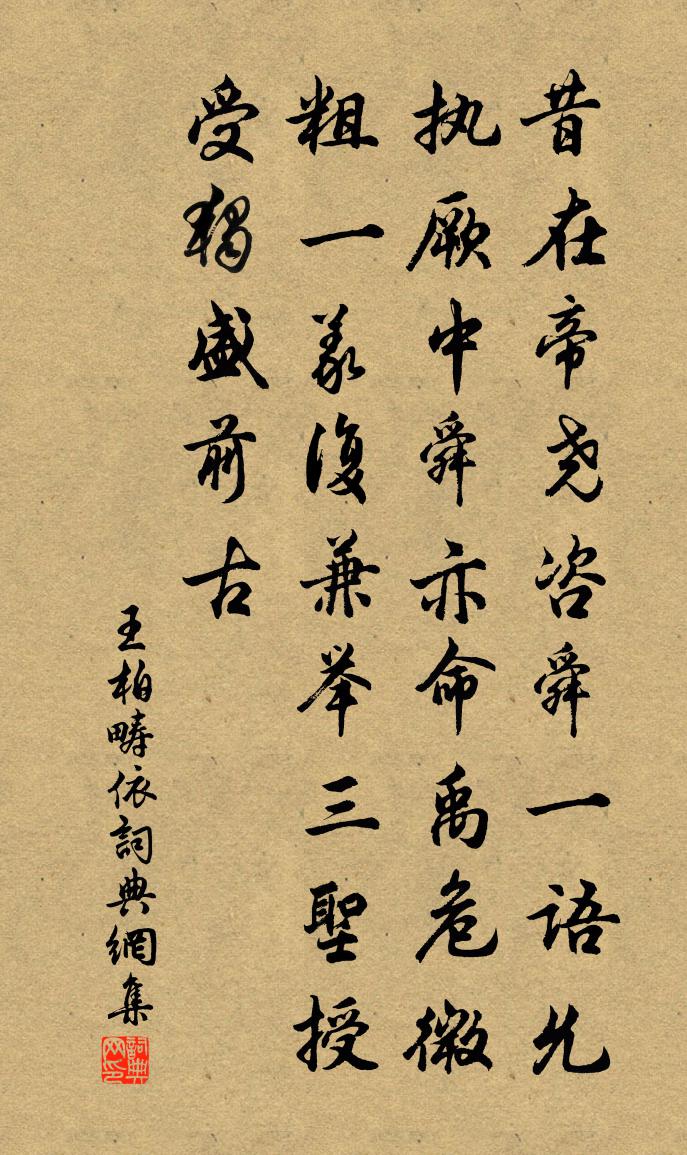 昔在帝尧咨舜一語允
执厥中舜亦命禹危微
粗一义復兼举三聖授
受独盛前古
王柏畴依詞典網集
詞典网印